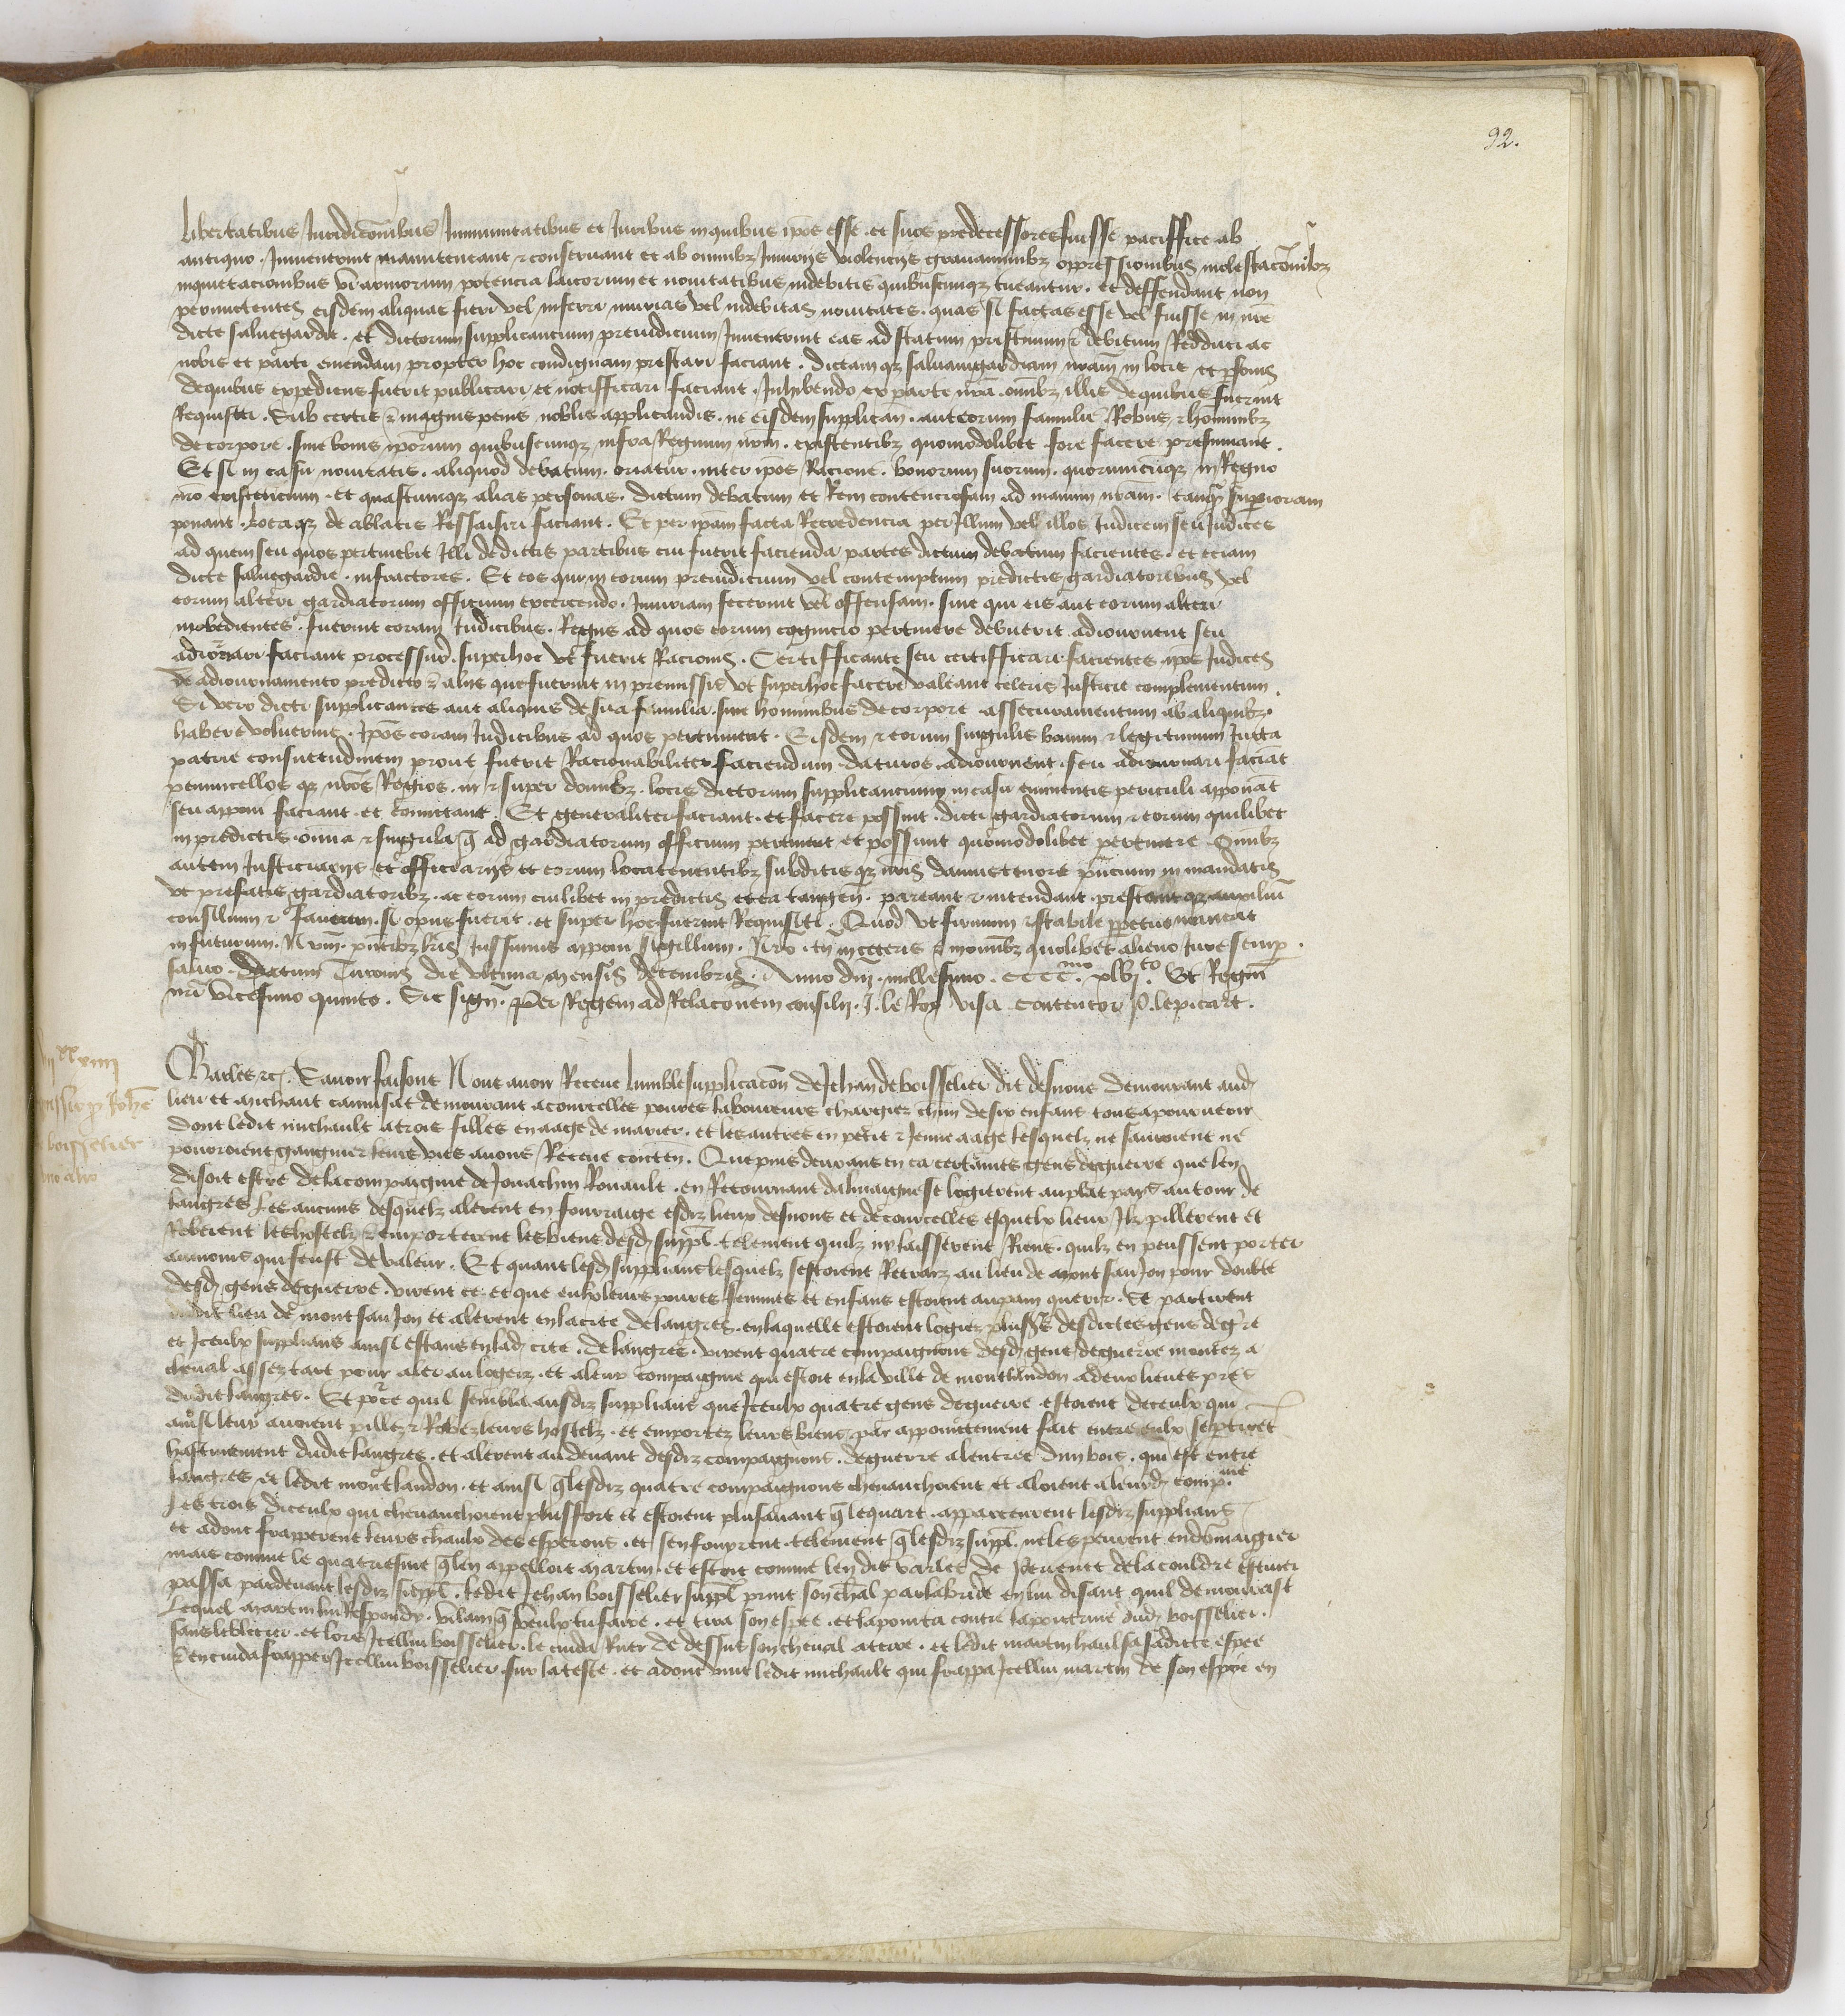 92.
Libertatibus Juridicōnibus Immunitatibus et Juribus in quibus ip̄os esse et suos predecessores fuisse paciffice ab
antiquo . Invenerint manuteneant & conservant et ab omnibz Jniuriis violencijs gravaminibz oppressionibus molestacōnibz
inquietacionibus vi armorum potencia laicorum et novitatibus indebitis quibuscunqz tueantur . et deffendant non
permittentes eisdem aliquas fieri vel inferri iniurias vel indebitas novitates . quas si factas esse vel fuisse in nr̄e
dicte salvegardie . et dictorum supplicancium preiudicium Invenerint eas ad statum pristinum & debitum Redduci ac
nobis et parti emendam propter hoc condignam prestari faciant . dictam qz salvamgardiam nr̄am in locis et p̄sonis
de quibus expediens fuerit publicari et notifficari faciant . Inhibendo ex parte nr̄a . omībz illis de quibus fuerint
Requisiti . Sub certis & magnis penis nobis applicandis . ne eisdem supplican . aut eorum familie Rebus & hominibz
de corpore . sive bonis ip̄orum quibuscunqz infra Regnum nr̄m . existentibz quomodolibet fore facere presumant .
Et si in casu novitatis . aliquod debatum . oriatur . inter ip̄os Racione . bonorum suorum . quorumcūqz in Regno
nr̄o existencium . et quascumqz alias personas . dictum debatum et Rem contenciosam ad manum nr̄am . tanqz̄ superiorem
ponant . Locaqz de ablatis Ressaisiri faciant . Et per ip̄am facta Recredencia per Illum vel illos Judicem seu Judices
ad quem seu quos pertinebit Illi de dictis partibus cui fuerit facienda partes dictum debatum facientes . et eciam
dicte salvegardie . infractores . Et eos qui in eorum preiudicium vel contemptum predictis gardiatoribus vel
eorum alteri gardiatorum officium excercendo . Iniuriam fecerint vel offensam . sive qui eis aut eorum alteri
inobedientes . fuerint coram Judicibus . Regiis ad quos eorum cognicio pertinere debuerit adiournent seu
adiornari faciant processur̄ . super hoc ut fuerit Racionis . Certifficante seu certifficari facientes ip̄os Judices
de adiournamento predicto & aliis que fuerint in premissis ut super hoc facere valeant celeris Justicie complementum .
Si vero dicti supplicantes aut aliquis de sua familia . sive hominibus de corpore . assecuramentum ab aliquibz .
habere voluerint . Ip̄os coram Judicibus ad quos pertinuerit . Eisdem & eorum singulis bonum & legitimum Iuxta
patrie consuetudinem prout fuerit Racionabiliter faciendum daturos . adiournent . seu adiornari faciāt
penuncellos qz nr̄os Regios . in & super domibz . locis dictorum supplicancium in casu eminentis periculi apponāt
seu apponi faciant . et comittant . Et generaliter faciant . et facere possint . dicti gardiatorum & eorum quilibet
in predictis . omnia & singula q̄ ad gardiatorum officium pertinent et possunt quomodolibet pertinere . Omībz
autem Justiciarijs et officiarijs et eorum locatenentibz subditis qz nr̄is damus tenore p̄ncium in mandatis
ut prefatis gardiatoribz . ac eorum cuilibet in predictis et ea tangen̄ . pareant & intendant . prestent qz auxiliū
consilium & favorem . si opus fuerit . et super hoc fuerint Requisiti . Quod ut firmum & stabile p̄petuo maneat
in futurum . Nr̄um . p̄ntibz lr̄is Jussimus apponi sigillum . Nr̄o . tn̄ in ceteris & in omībz quolibet alieno Jure semp̄ .
salvo . Datum Turonis die ultima mensis decembris . Anno dn̄j . millesimo . CCCC mo xlvj to . Et Regnī
nr̄i vicesimo quinto . Sic sign̄ . Per Regem ad Relacōnem consilij . J. le Roy Visa Contentor P. lepicart .

Charles &c̄ . Savoir faisons Nous avoir Receue lumble supplicacōn de Jehan de boisselier dit desnous demourant aud̄
lieu et michaut camusat demourant a courcelles povres laboureurs chargier chūn de six enfans tous a pourveoir
dont ledit michault a trois filles en aage de marier . et les autres en petit & jeune aage lesquelz ne sauroient ne
pourroient gaingnier leurs vies avons Receue conten̄ . Que puis deux ans en ca certaines gens de guerre que len
disoit estre de la compaignie de Jouachin Rouault . en Retournant dalmaigne se logierent au plat pais autour de
langres Les aucuns desquelz alerent en fourraige esdiz lieux desnous et de courcelles esquelx lieux Ilz pillerent et
Roberent les hostelz & emporterent les biens desd̄ suppl̄ . telement quilz ny laisserent Riens . quilz en peussent porter
aumoins qui feust de valeur . Et quant lesd̄ supplians lesquelz sestoient Retraiz au lieu de mont sanJon pour doubte
desd̄ gens de guerre . virent ce . et que eulx leurs povres femmes et enfans estoient au pain querir . Se partirent
dudit lieu de mont sanJon et alerent en la cite de langres . en laquelle estoient logiez plusr̄s desdictes gens de gr̄re
et Iceulx supplians ainsi estans en lad̄ cite . de langres . virent quatre compaignons desd̄ gens de guerre montez a
cheval assez tart pour aler au logeiz . et a leur compaignie qui estoit en la ville de montlandon a deux lieues pres
dudit langres . Et pr̄ce quil sembla ausdiz supplians que Iceulx quatre gens de guerre estoient de ceulx qui
ainsi leur avoient pillez & Robez leurs hostelz . et emportez leurs biens par appoinctement fait entre eulx se p̄tirēt
hastivement dudit langres . et alerent au devant desdiz compaignons . de guerre a lentree dun bois . qui est entre
langres et ledit montlandon . et ainsi q̄ lesdiz quatre compaignons chevauchoient et aloient a leurd̄ comp.nie
Les trois diceulx qui chevauchoient plus fort et estoient plus avant q̄ le quart . apparceurent lesdiz supplians
et adonc frapperent leurs chevaulx des esperons . et senfouyrent . telement q̄ lesdiz suppl̄ . ne les peurent endōmaigier
mais comme le quatriesme q̄ len appelloit martin . et estoit comme len dit varlet de Pervenet de la couldre escuier
passa pardevant lesdiz suppl̄ . ledit Jehan boisselier suppl̄ print son chēal par la bride en lui disant quil demourast
Lequel martin lui Respondy . vilain q̄ veulx tu faire . et tira son espee . et la pointa contre la poictrine dud̄ boisselier .
sans le blecier . et lors Icellui boisselier . le cuida Ruer de dessus son cheval a terre . et ledit martin haulsa sadicte espee
& en cuida frapper Icellui boisselier . sur la teste . et adonc vint ledit michault qui frappa Icellui martin de son espee en
boisselier